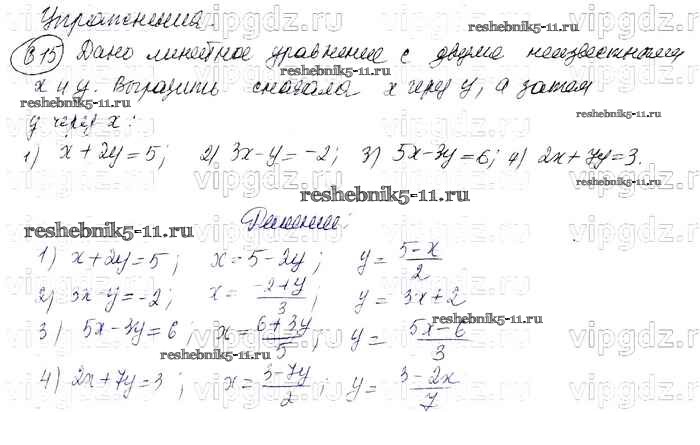 Упражнения.
615 Дано линейное уравнение с двумя неизвестными
x и y. Выразить сначала x через y, а затем
y через x:
1) x + 2y = 5; 2) 3x - y = -2; 3) 5x - 3y = 6; 4) 2x + 7y = 3.
reshebnik5-11.ru
Решение:
1) x + 2y = 5; x = 5 - 2y; y = \frac{5-x}{2}
2) 3x - y = -2; x = \frac{-2+y}{3}; y = 3x + 2
3) 5x - 3y = 6; x = \frac{6+3y}{5}; y = \frac{5x-6}{3}
4) 2x + 7y = 3; x = \frac{3-7y}{2}; y = \frac{3-2x}{7}
reshebnik5-11.ru
vipgdz.ru